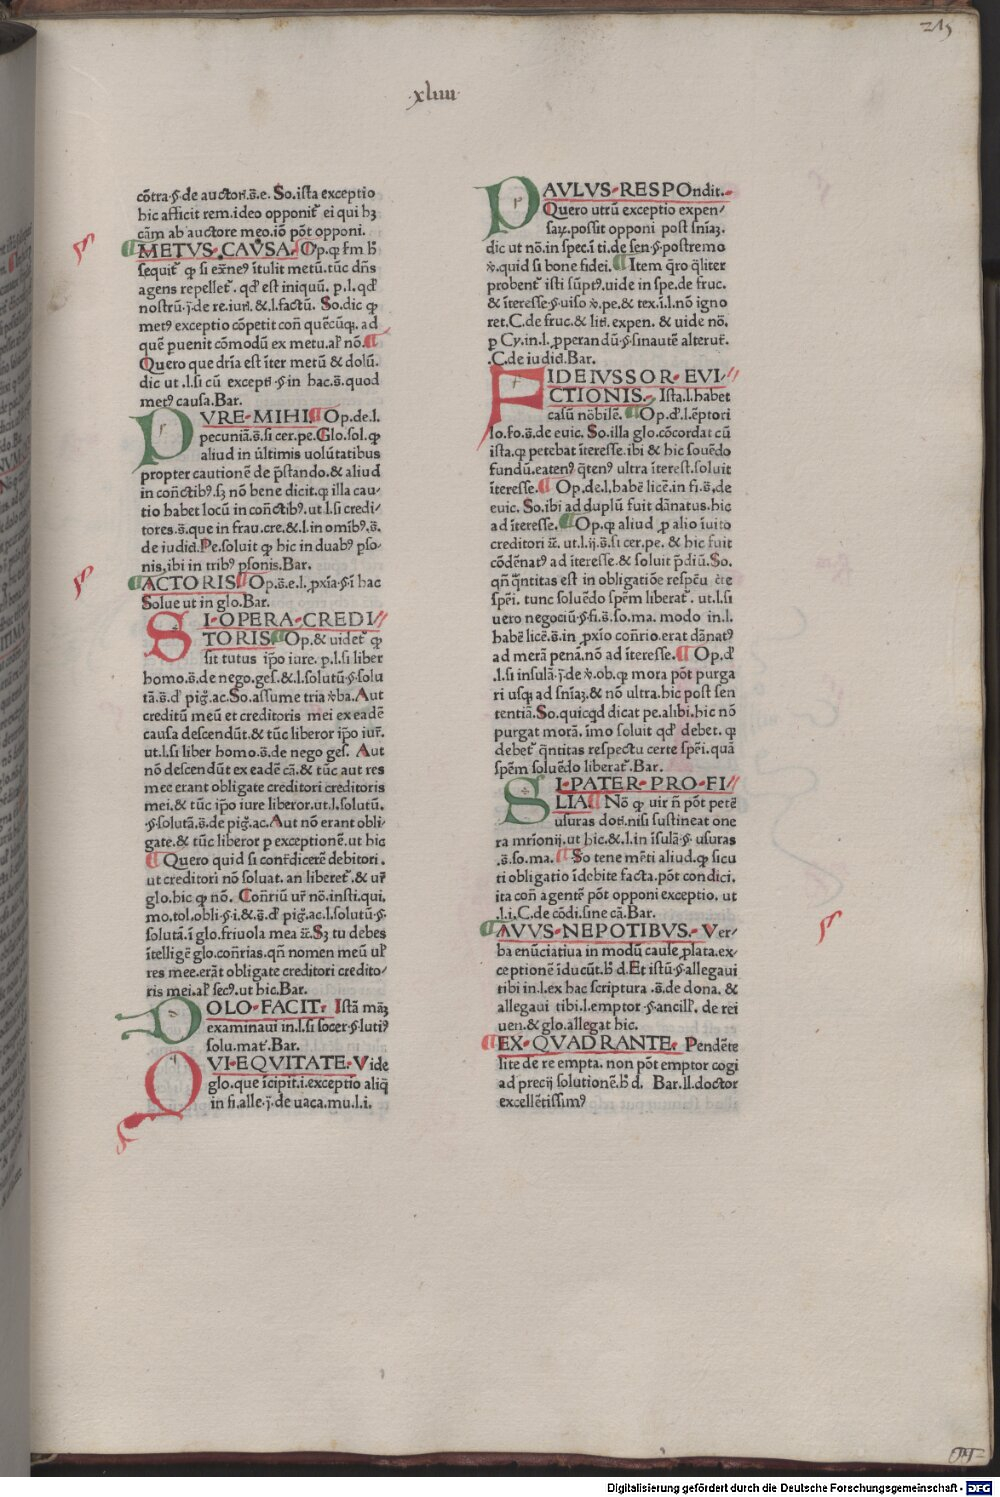 215
xliiii
cõtra.§.de auctori.s̃.e. So.ista exceptio
hic afficit rem.ideo opponit̃ ei qui hꝫ
cãm ab auctore meo.iõ põt opponi.
METVS CAVSA. Op.ꝙ fm h̃
sequit̃ ꝙ si exñe⁹ ĩtulit metũ.tũc dñs
agens repellet̃. qđ est iniquũ. p.l.qđ
nostrũ.j̃.de re.iuri.&.l.factũ. So.dic ꝙ
met⁹ exceptio cõpetit coñ quẽcũqꝫ ad
quẽ puenit cõmodũ ex metu.al̃ nõ.
Quero que dr̃ia est ĩter metũ & dolũ.
dic ut .l.si cũ excepti.§.in hac.s̃.quod
met⁹ causa.Bar.
PVRE MIHI Op.de.l.
pecuniã.s̃.si cer.pe.Glo.sol.ꝙ
aliud in ultimis uolũtatibus
propter cautionẽ de p̃stando.& aliud
in coñctib⁹.sꝫ nõ bene dicit.ꝙ illa cau-
tio habet locũ in coñctib⁹.ut.l.si credi-
tores.s̃.que in frau.cre.&.l.in omib⁹.s̃.
de iudici.Pe.soluit ꝙ hic in duab⁹ pso-
nis,ibi in trib⁹ psonis.Bar.
ACTORIS Op.s̃.e.l.ꝓxĩa.§.ĩ hac
Solue ut in glo.Bar.
SI OPERA CREDI
TORIS Op.& uidet̃ ꝙ
sit tutus ip̃o iure. p.l.si liber
homo.s̃.de nego.ges.&.l.solutũ.§.solu
tã.s̃.đ pig̃.ac.So.assume tria ꝟba.Aut
creditũ meũ et creditoris mei ex eadẽ
causa descendũt.& tũc liberor ip̃o iur̃.
ut.l.si liber homo.s̃.de nego ges. Aut
nõ descendũt ex eadẽ cã.& tũc aut res
mee erant obligate creditori creditoris
mei.& tũc ip̃o iure liberor.ut.l.solutũ.
.§.solutã.s̃.de pig̃.ac.Aut nõ erant obli-
gate.& tũc liberor p exceptionẽ.ut hic
Quero quid si cont̃dicerẽ debitori.
ut creditori nõ soluat. an liberet̃.& ur̃
glo.hic ꝙ nõ. Coñriũ ur̃ nõ.insti.qui.
mo.tol.obli.§.i.&.s̃.đ pig̃.ac.l.solutũ.§.
solutã.ĩ glo.friuola mea z̃.Sꝫ tu debes
ĩtellige glo.coñrias.qñ nomen meũ ul̃
res mee.erãt obligate creditori credito-
ris mei.al̃ sec⁹.ut hic.Bar.
DOLO FACIT. Istã mãꝫ
examinaui in.l.si socer.§.luti⁹
solu.mat̃.Bar.
QVI EQVITATE. Vide
glo.que ĩcipit.i.exceptio aliq̃
in fi.alle.j̃.de uaca.mu.l.i.
PAVLVS RESPOndit.
Quero utrũ exceptio expen-
saꝝ.possit opponi post sñiaꝫ.
dic ut nõ.in spec.ĩ ti.de sen.§.postremo
ꝟ.quid si bone fidei. Item q̃ro q̃liter
probent̃ isti sũpt⁹.uide in spe.de fruc.
& ĩteresse.§.uiso ꝟ.pe.& tex.ĩ.l.nõ igno
ret.C.de fruc.& liti. expen. & uide nõ.
p Cy.in.l.ꝓperandũ.§.sinautẽ alterut̃.
.C.de iudici.Bar.
FIDEIVSSOR EVI
CTIONIS. Ista.l.habet
casũ nõbilẽ. Op.đ.l.ẽptori
lo.fo.s̃.de euic. So.illa glo.cõcordat cũ
ista.ꝙ petebat ĩteresse.ibi & hic souẽdo
fundũ.eaten⁹ q̃ten⁹ ultra ĩterest.soluit
ĩteresse. Op.de.l.habẽ licẽ.in fi.s̃.de
euic. So.ibi ad duplũ fuit dãnatus.hic
ad ĩteresse. Op.ꝙ aliud ꝓ alio ĩuito
creditori z̃. ut.l.ij.s̃.si cer.pe. & hic fuit
cõdẽnat⁹ ad ĩteresse.& soluit p̃diũ.So.
qñ q̃ntitas est in obligatiõe respẽu c̃te
spẽi. tunc soluẽdo spẽm liberat̃. ut.l.si
uero negociũ.§.fi.s̃.so.ma. modo in.l.
habẽ licẽ.s̃.in ꝓxĩo coñrio.erat dãnat⁹
ad merã penã.nõ ad ĩteresse. Op.đ
.l.si insulã.j̃.de ꝟ.ob.ꝙ mora põt purga
ri usqꝫ ad sñiaꝫ.& nõ ultra.hic post sen
tentiã.So.quicq̃d dicat pe.alibi.hic nõ
purgat morã. ĩmo soluit qđ debet. ꝙ
debet q̃ntitas respectu certe spẽi.quã
spẽm soluẽdo liberat̃.Bar.
SI PATER PRO FI
LIA. Nõ ꝙ uir ñ põt petẽ
usuras doti.nisi sustineat one
ra mr̃ionij.ut hic.&.l.in ĩsulã.§. usuras
.s̃.so.ma. So tene mẽti aliud.ꝙ sicu
ti obligatio ĩdebite facta.põt condici.
ita coñ agentẽ põt opponi exceptio. ut
.l.i.C.de cõdi.sine cã.Bar.
AVVS NEPOTIBVS. Ver-
ba enũciatiua in modũ cause ꝓlata.ex-
ceptionẽ ĩducũt.h̃ d.Et istũ.§.allegaui
tibi in.l.ex hac scriptura .s̃.de dona. &
allegaui tibi.l.emptor .§.ancill̃. de rei
uen.& glo.allegat hic.
EX QVADRANTE. Pendẽte
lite de re empta. non põt emptor cogi
ad precij solutionẽ.h̃ d. Bar.ll.doctor
excellẽtissim⁹
Digitalisierung gefördert durch die Deutsche Forschungsgemeinschaft - DFG